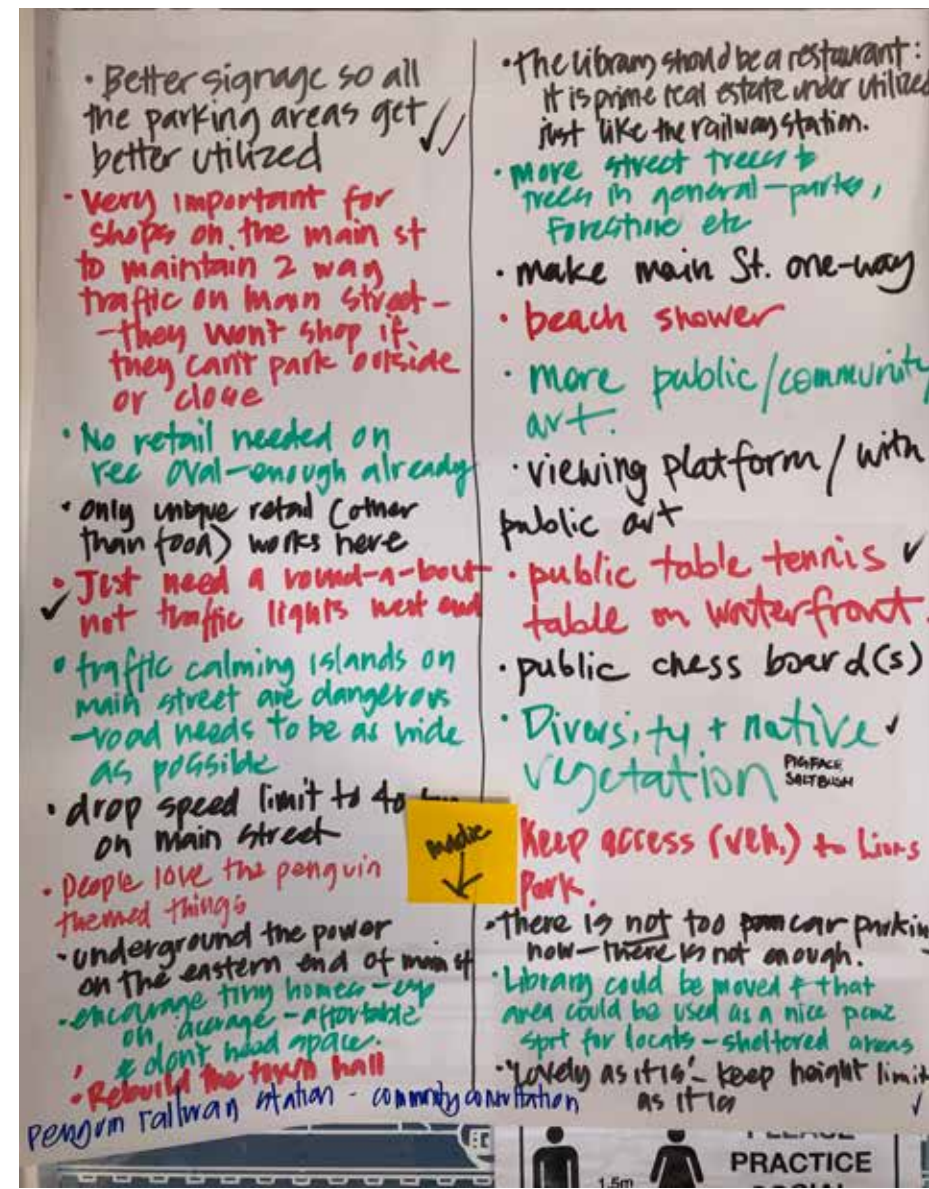 • Better signage so all
the parking areas get
better utilized
• Very important for
shops on the main st
to maintain 2 way
traffic on main street -
- they wont shop if
they cant park outside
or close
• No retail needed on
rec oval - enough already
• only unique retail (other
than food) works here
• Just need a round-a-bout
not traffic lights west end
• traffic calming islands on
main street are dangerous
- road needs to be as wide
as possible
• drop speed limit to 40
on main street
• People love the penguin
themed things
• underground the power
on the eastern end of main st
• encourage tiny homes - esp
on acerage - affortable
& dont need space.
• Rebuild the town hall
penguin railway station - community consultation
• the library should be a restaurant:
It is prime real estate under utilized
just like the railway station.
• More street trees &
trees in general - parks,
Foreshore etc
• make main St. one-way
• beach shower
• more public/community
art.
• viewing platform / with
public art
• public table tennis
table on waterfront.
• public chess board(s)
• Diversity + native
vegetation PIGFACE
SALTBUSH
Keep access (veh.) to Lions
Park.
• there is not too car parkin
now - there is not enough.
• Library could be moved & that
area could be used as a nice
for locals - sheltered areas
• "Lovely as it is" - keep height limit
as it is
1.5m
PLEASE
PRACTICE
SOCIAL